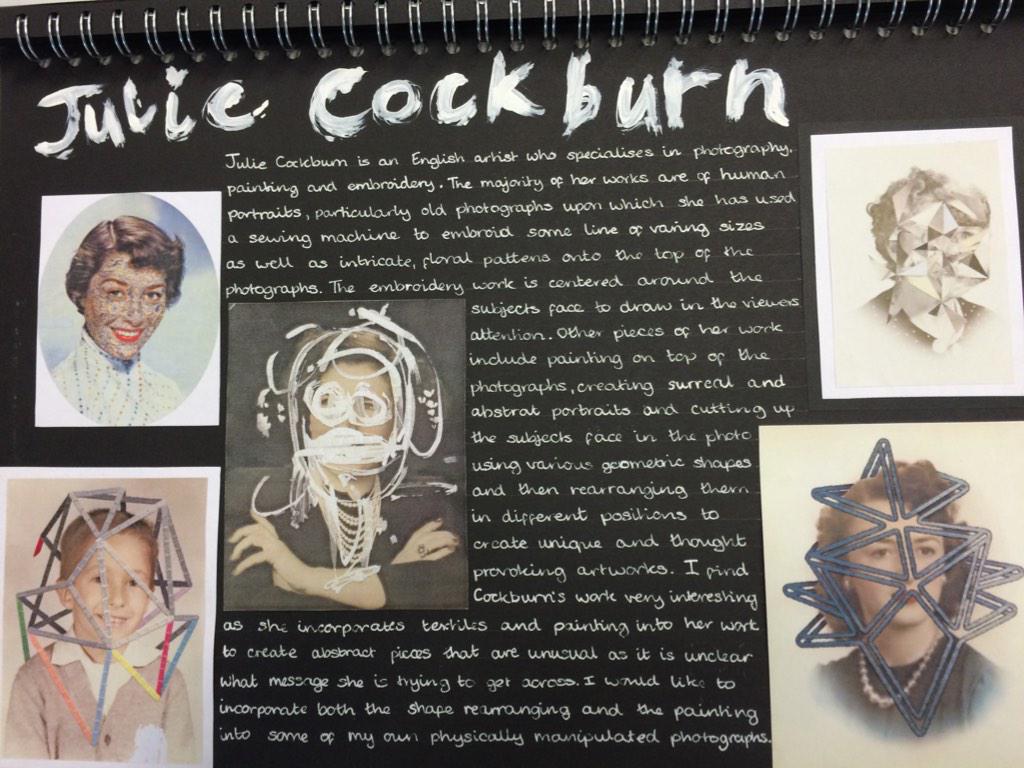 Julie Cockburn
Julie Cockburn is an English artist who specialises in photography,
painting and embroidery. The majority of her works are of human
portraits, particularly old photographs upon which she has used
a sewing machine to embroid some line of varing sizes
as well as intricate, floral pattens onto the top of the
photographs. The embroidery work is centered around the
subjects face to draw in the viewers
attention. Other pieces of her work
include painting on top of the
photographs, creating surreal and
abstrat portraits and cutting up
the subjects face in the photo
using various geometric shapes
and then rearranging them
in different positions to
create unique and thought
provoking artworks. I find
Cockburn's work very interesting
as she incorporates textiles and painting into her work
to create abstract pieces that are unusual as it is unclear
what message she is trying to get across. I would like to
incorporate both the shape rearranging and the painting
into some of my own physically manipulated photographs.